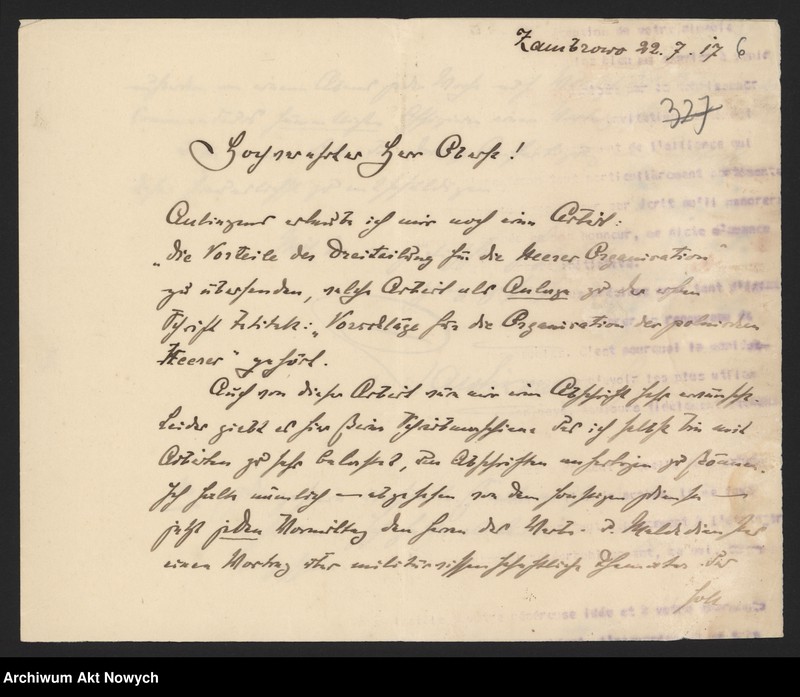 Zambrowo 22.7.17 6
327
Hochverehrter Herr Oberst!
Anliegend erlaube ich mir noch eine Arbeit:
„Die Vorteile der Dreiteilung für die Heeres Organisation“
zu übersenden, welche Arbeit als Anlage zu der
Schrift betitelt: „Vorschläge für die Organisation des polnischen
Heeres“ gehört.
Auch von dieser Arbeit wäre mir eine Abschrift sehr erwünscht.
Leider giebt es hier keine Schreibmaschine und ich selbst bin mit
Arbeiten zu sehr belastet, um Abschriften anfertigen zu können.
Ich halte nämlich — abgesehen von dem sonstigen Dienste —
jetzt jeden Vormittag den Herren des
einen Vortrag über militärwissenschaftliche Themata. Das
soll
Archiwum Akt Nowych